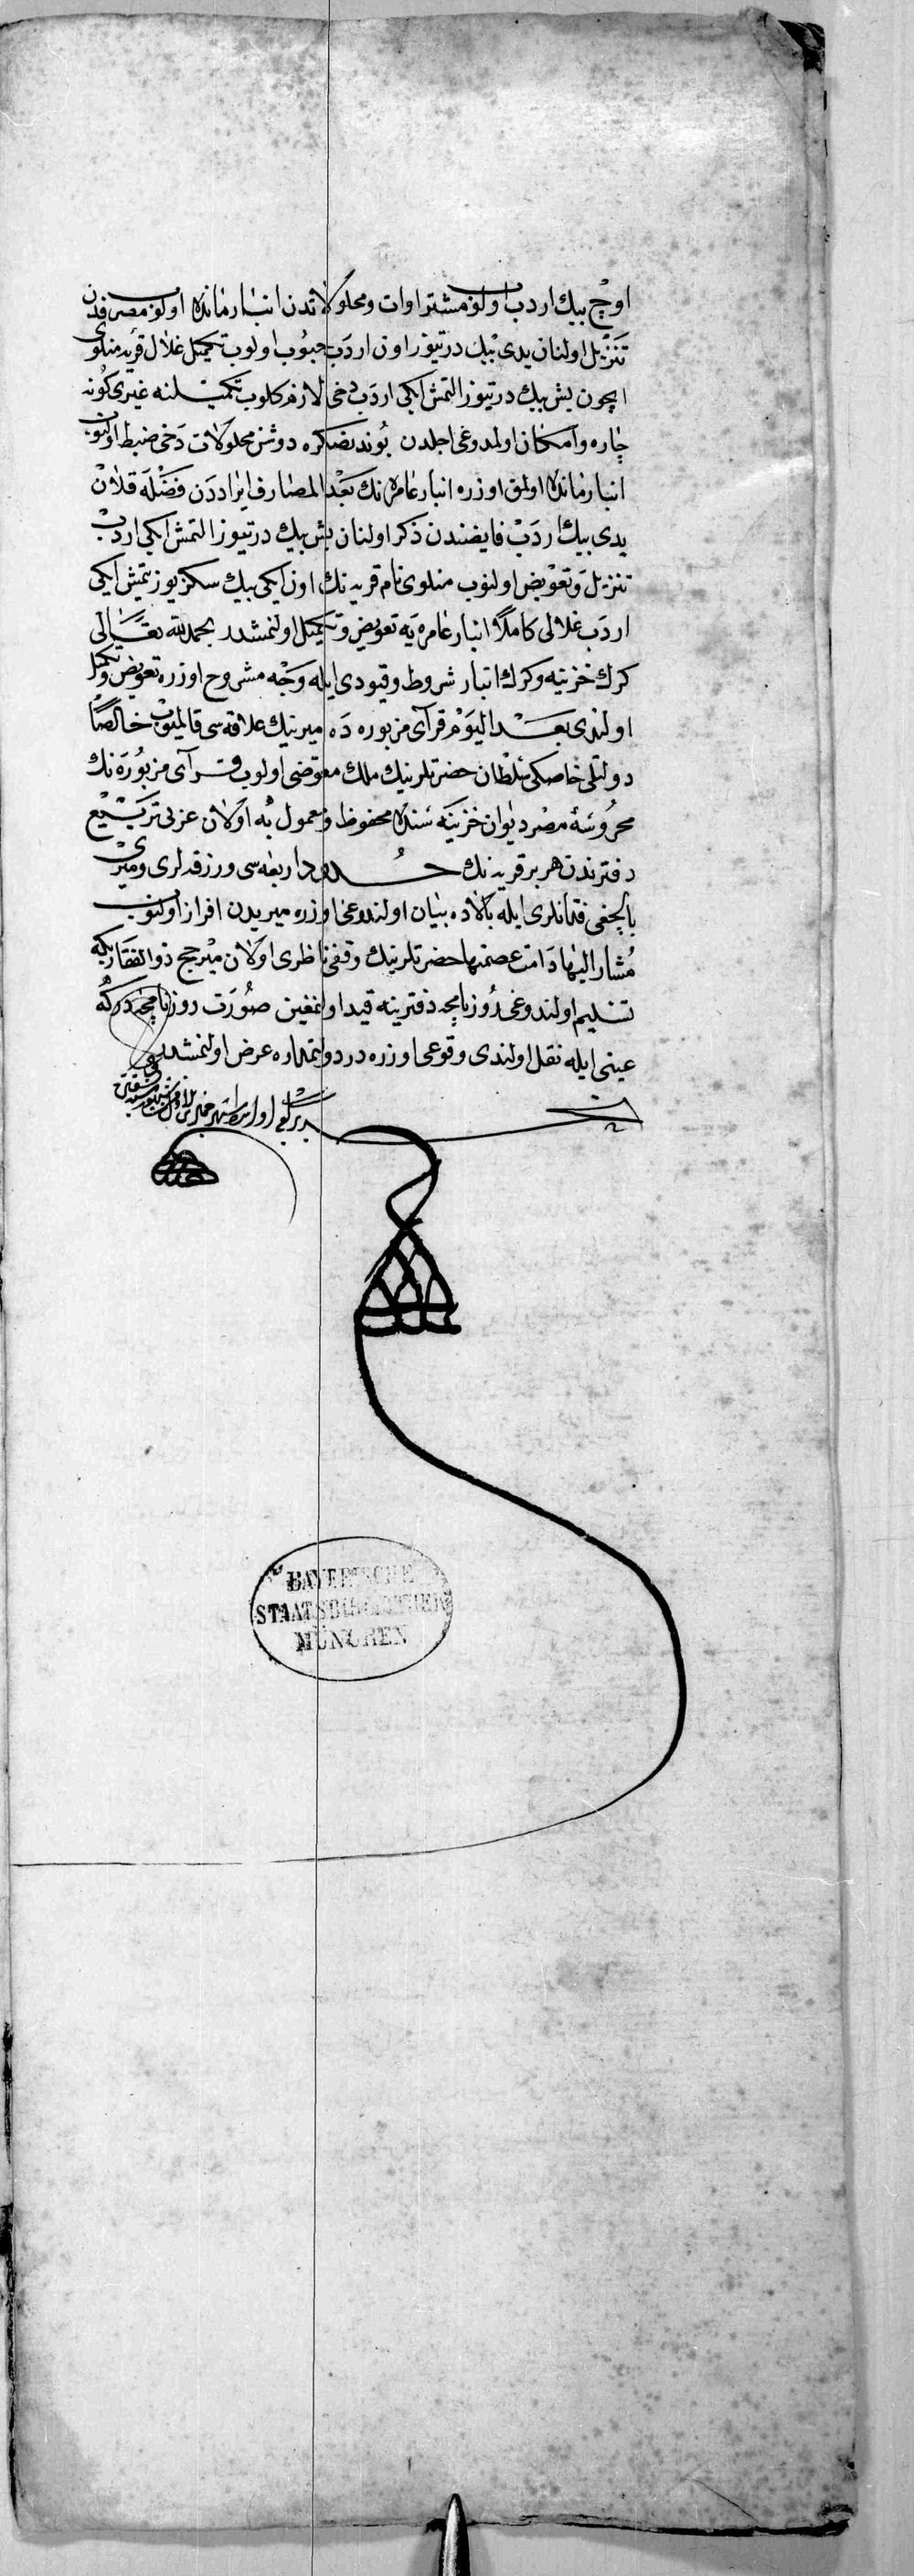 اوچ بيك اردب اولوز مشتراوات ومحلولاتدن انبارمانده اولوز مصرفدن
تنزيل اولنان يدى بيك درتيوز اون اردب حبوب اولوب تكميل غلال قريه منلوى
ايچون بش بيك درتيوز التمش ايكى اردب دخى لازم كلوب تكميلنه غيرى كونه
چاره وامكان اولمدوغى اجلدن بوندنصكره دوشن محلولات دخى ضبط اولنوب
انبارمانده اولمق اوزره انبار عامره نك بعد المصارف ايراددن فضله قلان
يدى بيك اردب فايضندن ذكر اولنان بش بيك درتيوز التمش ايكى اردب
تنزيل وتعويض اولنوب منلوى نام قريه نك اون ايكى بيك سكزيوز يتمش ايكى
اردب غلالى كاملا انبار عامره يه تعويض وتكميل اولنمشدر بحمد الله تعالى
كرك خزينه وكرك انبار شروط وقيودى ايله وجه مشروح اوزره تعويض وتكميل
اولندى بعد اليوم قرآى مزبوره ده ميرينك علاقه سى قالميوب خالصا
دولتلى خاصكى سلطان حضرتلرينك ملك مفوضى اولوب قرآى مزبوره نك
محروسهٔ مصر ديوان خزينه سنده محفوظ ومعمول به اولان عزبى تربيع
دفترندن هر بر قريه نك حدود اربعه سى ورزقه لرى وميرى
بالچغى فدانلرى ايله بالاده بيان اولندوغى اوزره ميريدن افراز اولنوب
مشار اليها دامت عصمتها حضرتلرينك وقفى ناظرى اولان ميرحج ذو الفقار بكه
تسليم اولندوغى روزنامچه دفترينه قيد اولنمغين صورت روزنامچه دركه
عينى ايله نقل اولندى وقوعى اوزره در دولتمداره عرض اولنمشدر
BAYERISCHE
STAATSBIBLIOTHEK
MÜNCHEN